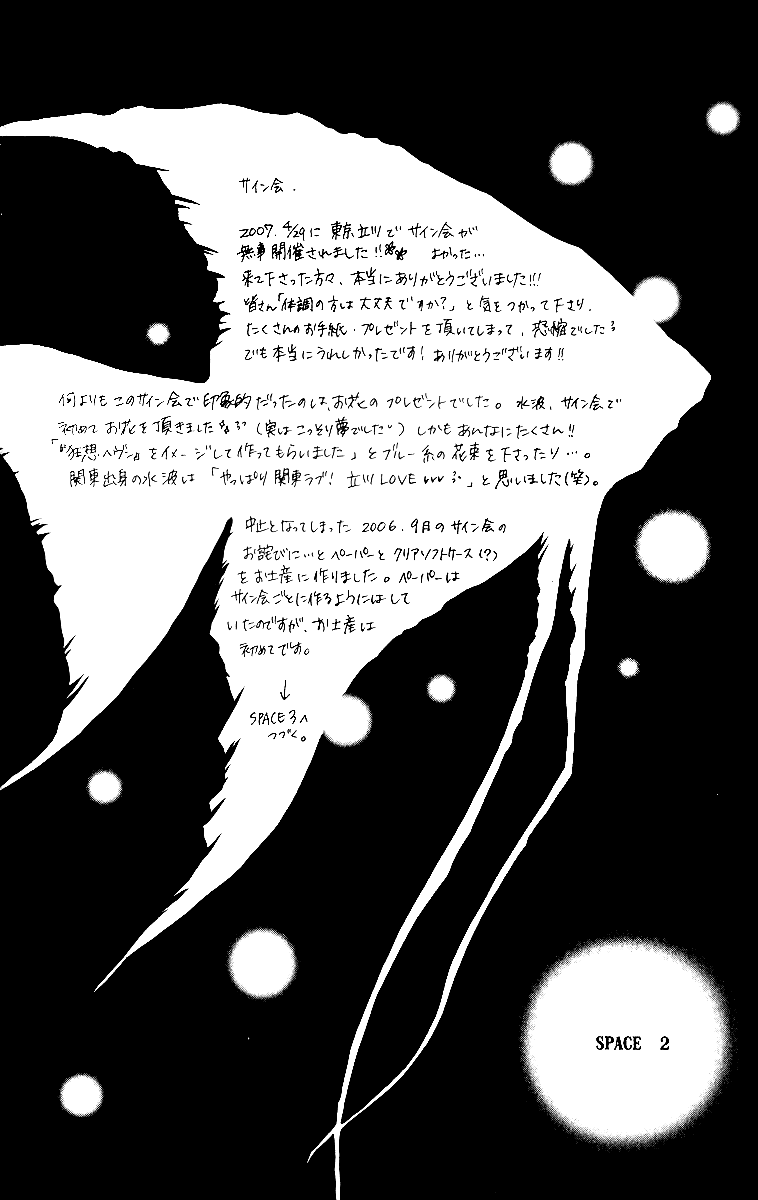 サイン会.
2007.4/29に 東京立川で サイン会が
無事 開催されました!! よかった…
来て下さった方々、本当にありがとうございました!!!
皆さん「体調の方は大丈夫ですか?」と気をつかって下さり、
たくさんのお手紙・プレゼントを頂いてしまって、恐縮でした
でも本当にうれしかったです! ありがとうございます!!
何よりもこのサイン会で印象的だったのは、お花のプレゼントでした。水波、サイン会で
初めてお花を頂きました (実はこっそり夢でした) しかもあんなにたくさん!!
「『狂想ヘヴン』をイメージして作ってもらいました」とブルー系の花束を下さったり…。
関東出身の水波は「やっぱり関東ラブ! 立川LOVE♥♥♥」と思いました(笑)。
中止となってしまった 2006.9月のサイン会の
お詫びに…とペーパーとクリアソフトケース(?)
をお土産に作りました。ペーパーは
サイン会ごとに作るようにはして
いたのですが、お土産は
初めてです。
↓
SPACE 3へ
つづく。
SPACE 2